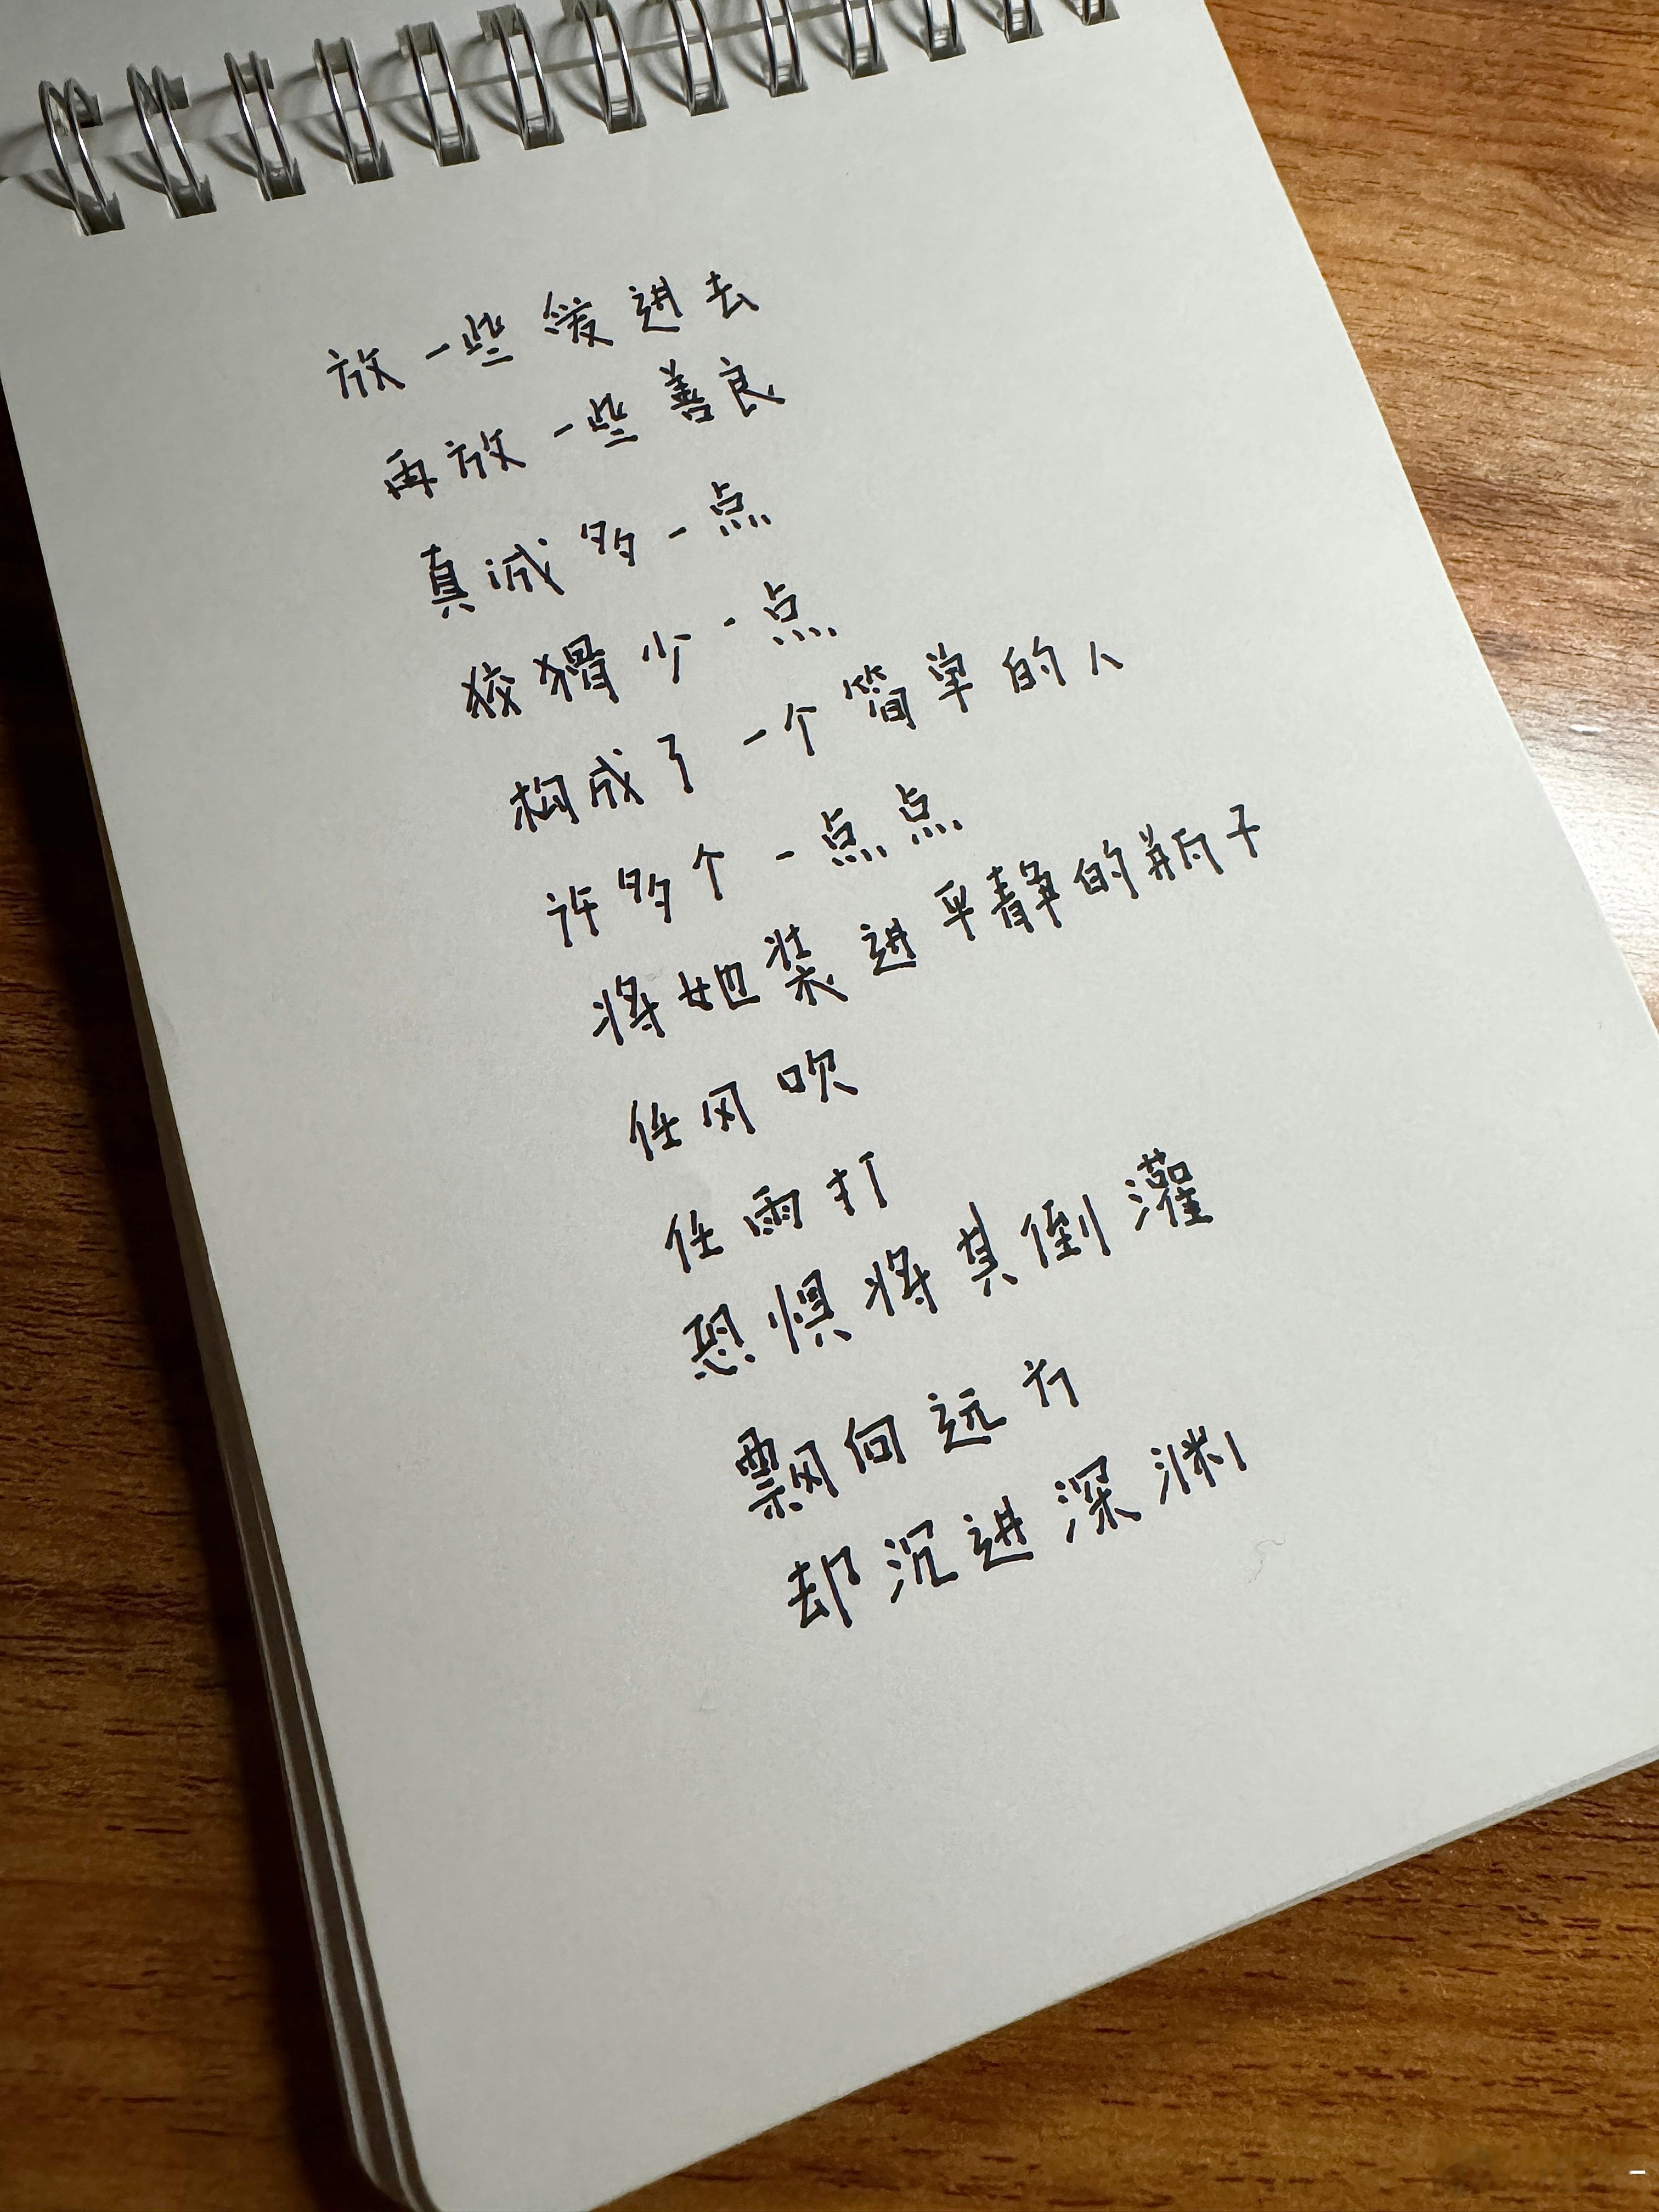 放一些缓进去
再放一些善良
真诚多一点
狡猾少一点
构成了一个简单的人
许多个一点点
将她装进平静的瓶子
任风吹
任雨打
恐惧将其倒灌
飘向远方
却沉进深渊